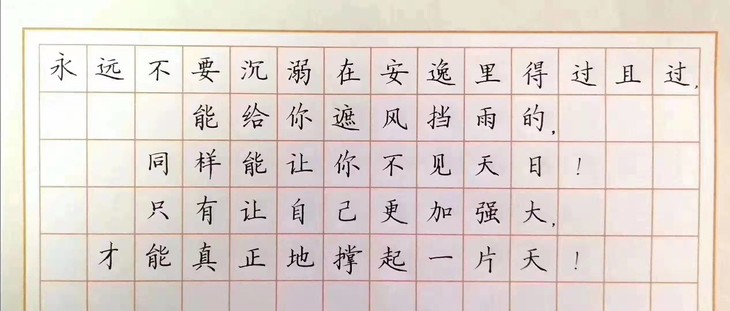 永远不要沉溺在安逸里得过且过,
能给你遮风挡雨的,
同样能让你不见天日！
只有让自己更加强大,
才能真正地撑起一片天！